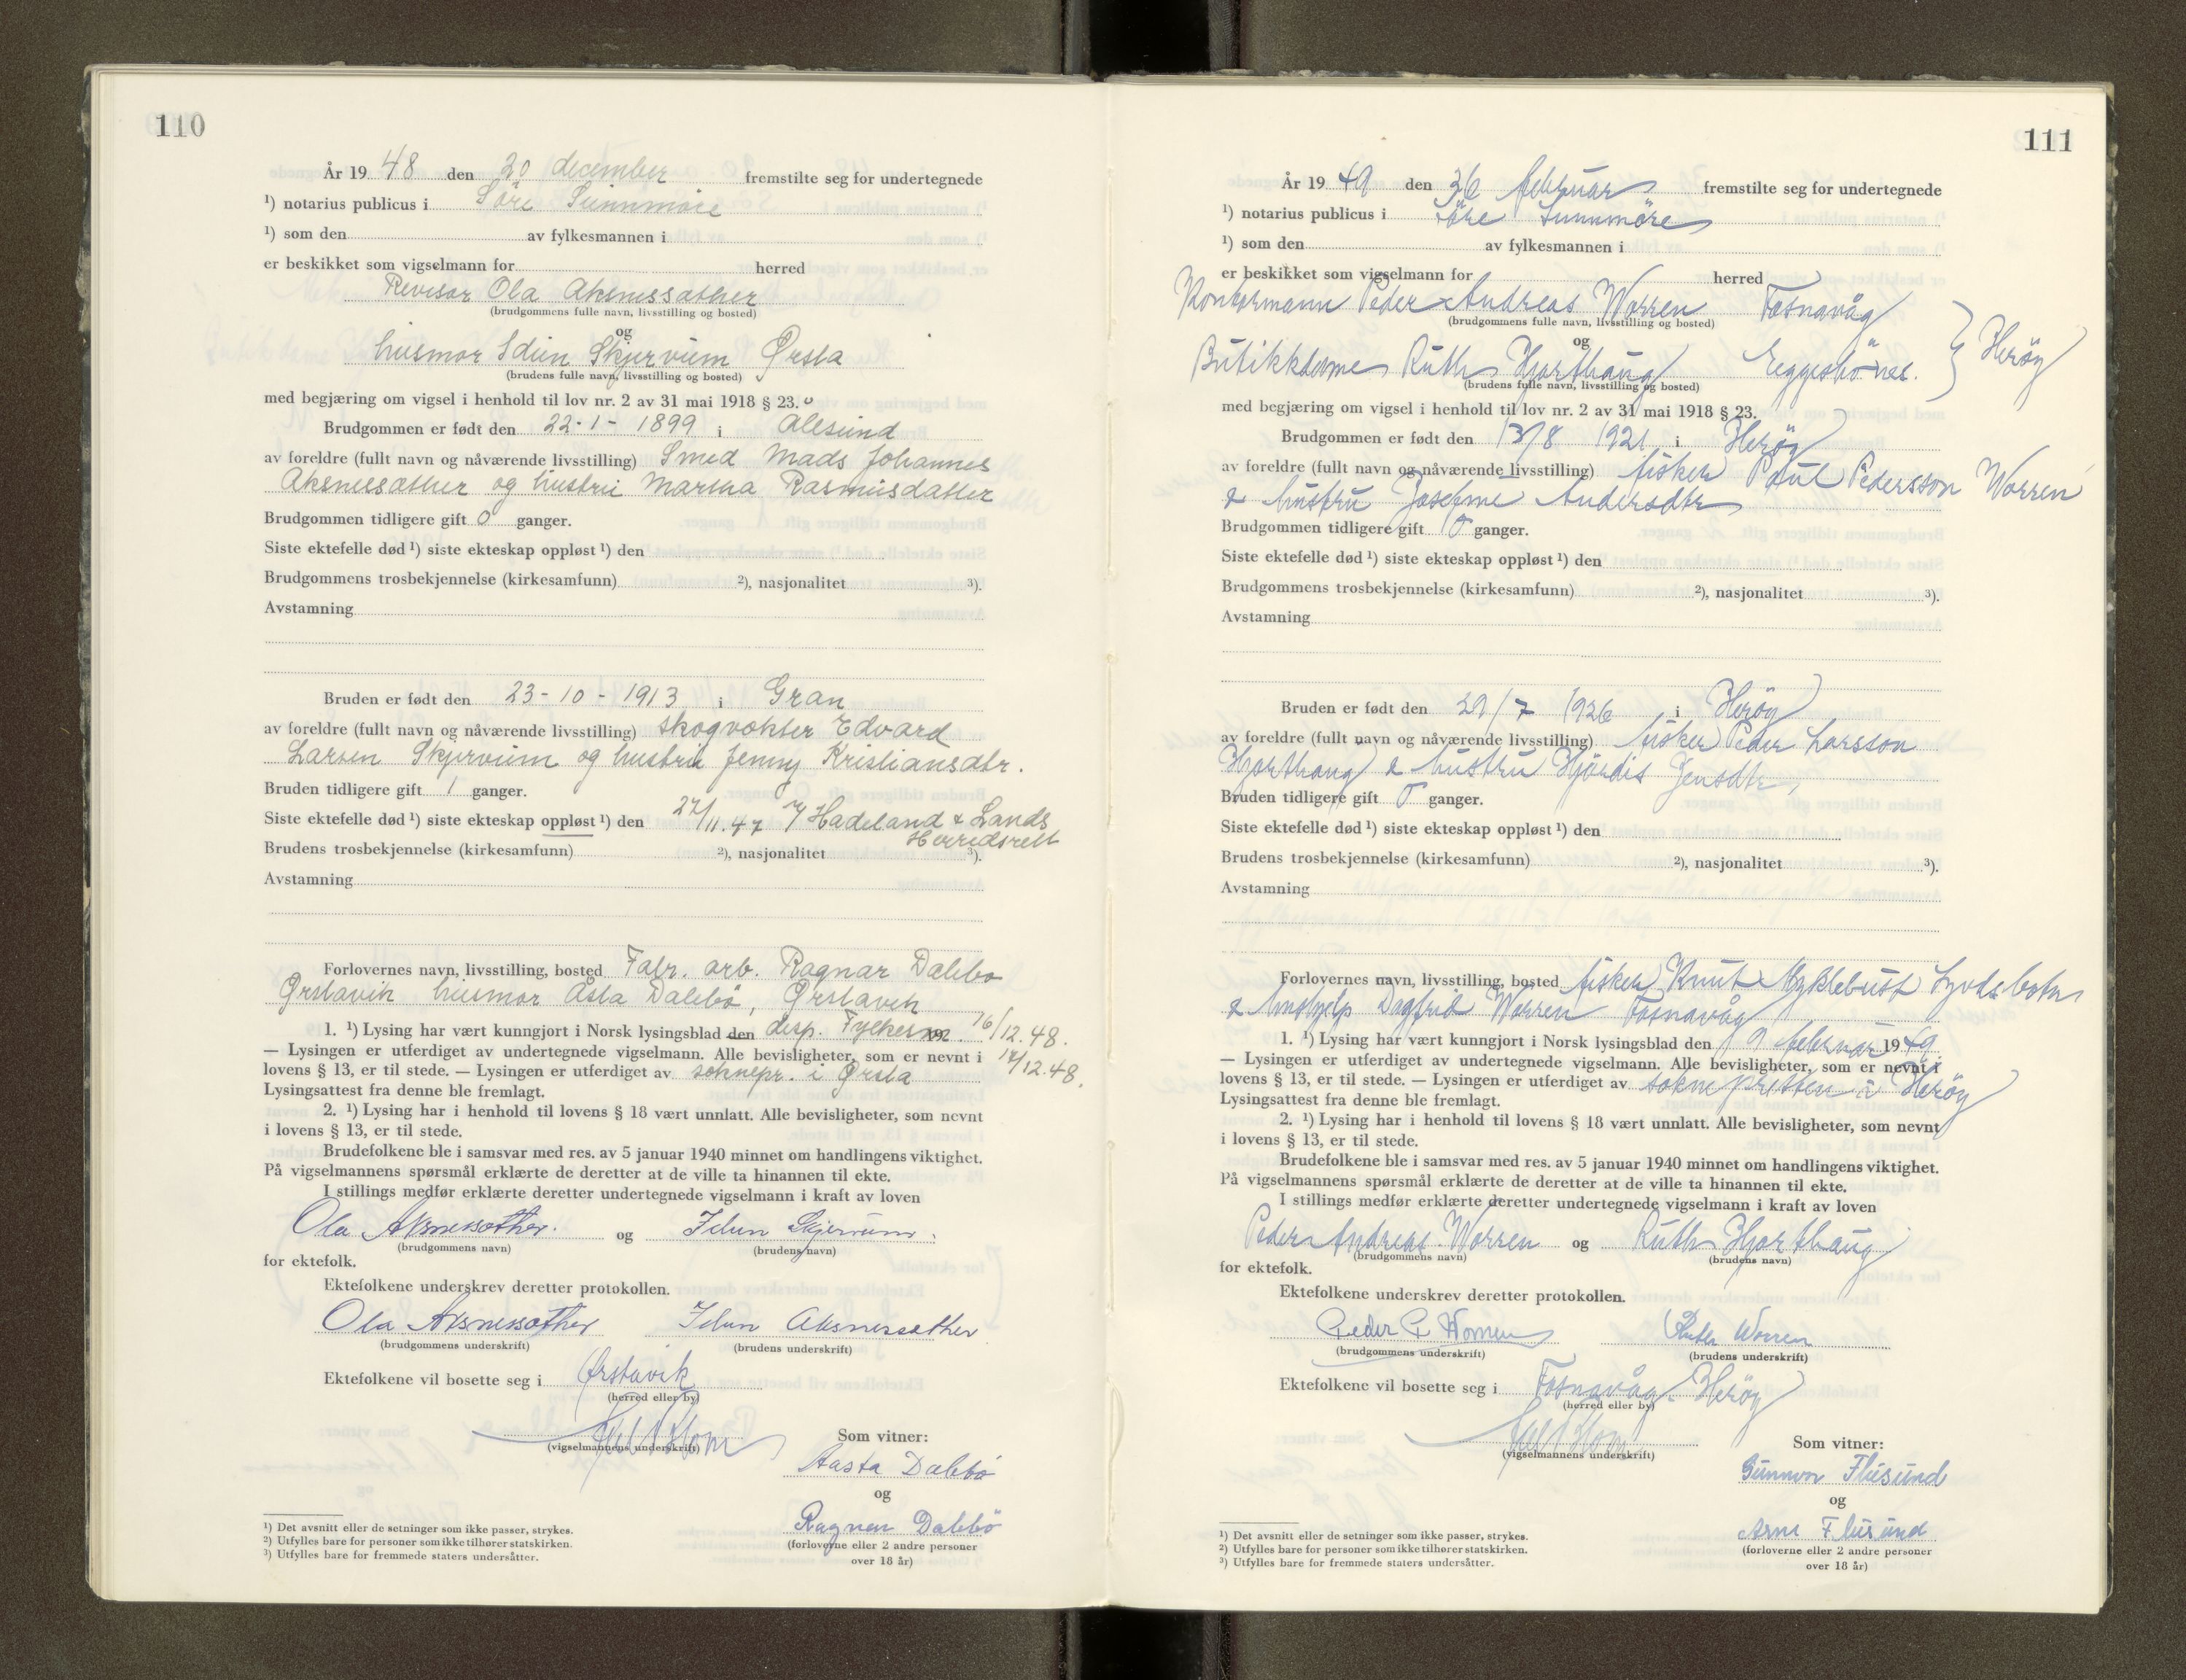 110
År 19 48 den 20 december fremstilte seg for undertegnede
¹) notarius publicus i Søre Sunnmøre
¹) som den av fylkesmannen i
er beskikket som vigselmann for herred
Revisor Ola Aksnessæther
(brudgommens fulle navn, livsstilling og bosted)
og
husmor Idun Skjervum Ørsta
(brudens fulle navn, livsstilling og bosted)
med begjæring om vigsel i henhold til lov nr. 2 av 31 mai 1918 § 23.
Brudgommen er født den 22-1-1899 i Ålesund
av foreldre (fullt navn og nåværende livsstilling) Smed Mads Johannes
Aksnessæther og hustru Martha Rasmusdatter
Brudgommen tidligere gift 0 ganger.
Siste ektefelle død ¹) siste ekteskap oppløst ¹) den
Brudgommens trosbekjennelse (kirkesamfunn) ²), nasjonalitet ³).
Avstamning
Bruden er født den 23-10-1913 i Gran
av foreldre (fullt navn og nåværende livsstilling) skogvokter Edvard
Larsen Skjervum og hustru Jenny Kristiansdtr.
Bruden tidligere gift 1 ganger.
Siste ektefelle død ¹) siste ekteskap oppløst ¹) den 27/11.47 Hadeland & Lands
Herredsrett
Brudens trosbekjennelse (kirkesamfunn) ²), nasjonalitet ³).
Avstamning
Forlovernes navn, livsstilling, bosted Fabr. arb. Ragnar Dalebø
Ørstavik husmor Åsta Dalebö, Ørstavik
1. ¹) Lysing har vært kunngjort i Norsk lysingsblad den disp. Fylkesm. 16/12.48.
— Lysingen er utferdiget av undertegnede vigselmann. Alle bevisligheter, som er nevnt i
lovens § 13, er til stede. — Lysingen er utferdiget av soknepr. i Ørsta 17/12.48.
Lysingsattest fra denne ble fremlagt.
2. ¹) Lysing har i henhold til lovens § 18 vært unnlatt. Alle bevisligheter, som nevnt
i lovens § 13, er til stede.
Brudefolkene ble i samsvar med res. av 5 januar 1940 minnet om handlingens viktighet.
På vigselmannens spørsmål erklærte de deretter at de ville ta hinannen til ekte.
I stillings medfør erklærte deretter undertegnede vigselmann i kraft av loven
Ola Aksnessæther. og Idun Skjervum.
(brudgommens navn) (brudens navn)
for ektefolk.
Ektefolkene underskrev deretter protokollen.
Ola Aksnessæther Idun Aksnessæther
(brudgommens underskrift) (brudens underskrift)
Ektefolkene vil bosette seg i Ørstavik
(herred eller by)
(vigselmannens underskrift)
Som vitner:
Aasta Dalebö
og
Ragnar Dalebö
(forloverne eller 2 andre personer
over 18 år)
¹) Det avsnitt eller de setninger som ikke passer, strykes.
²) Utfylles bare for personer som ikke tilhører statskirken.
³) Utfylles bare for fremmede staters undersåtter.
111
År 19 49 den 26 februar fremstilte seg for undertegnede
¹) notarius publicus i Søre Sunnmøre
¹) som den av fylkesmannen i
er beskikket som vigselmann for herred
Kontormann Peder Andreas Worren Fosnavåg
(brudgommens fulle navn, livsstilling og bosted)
og
Butikkdame Ruth Hjorthaug Eggesbönes. } Herøy
(brudens fulle navn, livsstilling og bosted)
med begjæring om vigsel i henhold til lov nr. 2 av 31 mai 1918 § 23.
Brudgommen er født den 13/8 1921 i Herøy
av foreldre (fullt navn og nåværende livsstilling) fisker Paul Pedersson Worren
& hustru Josefine Andersdtr
Brudgommen tidligere gift 0 ganger.
Siste ektefelle død ¹) siste ekteskap oppløst ¹) den
Brudgommens trosbekjennelse (kirkesamfunn) ²), nasjonalitet ³).
Avstamning
Bruden er født den 29/7 1926 i Herøy
av foreldre (fullt navn og nåværende livsstilling) fisker Peder Larsson
Hjorthaug & hustru Hjördis Jensdtr,
Bruden tidligere gift 0 ganger.
Siste ektefelle død ¹) siste ekteskap oppløst ¹) den
Brudens trosbekjennelse (kirkesamfunn) ²), nasjonalitet ³).
Avstamning
Forlovernes navn, livsstilling, bosted fisker Knut Myklebust
& hushjelp Dagfrid Worren Fosnavåg
1. ¹) Lysing har vært kunngjort i Norsk lysingsblad den 9 februar 19 49
— Lysingen er utferdiget av undertegnede vigselmann. Alle bevisligheter, som er nevnt i
lovens § 13, er til stede. — Lysingen er utferdiget av soknepresten i Herøy
Lysingsattest fra denne ble fremlagt.
2. ¹) Lysing har i henhold til lovens § 18 vært unnlatt. Alle bevisligheter, som nevnt
i lovens § 13, er til stede.
Brudefolkene ble i samsvar med res. av 5 januar 1940 minnet om handlingens viktighet.
På vigselmannens spørsmål erklærte de deretter at de ville ta hinannen til ekte.
I stillings medfør erklærte deretter undertegnede vigselmann i kraft av loven
Peder Andreas Worren og Ruth Hjorthaug
(brudgommens navn) (brudens navn)
for ektefolk.
Ektefolkene underskrev deretter protokollen.
Peder A Worren Ruth Worren
(brudgommens underskrift) (brudens underskrift)
Ektefolkene vil bosette seg i Fosnavåg Herøy
(herred eller by)
(vigselmannens underskrift)
Som vitner:
Gunnvor Flusund
og
Arne Flusund
(forloverne eller 2 andre personer
over 18 år)
¹) Det avsnitt eller de setninger som ikke passer, strykes.
²) Utfylles bare for personer som ikke tilhører statskirken.
³) Utfylles bare for fremmede staters undersåtter.